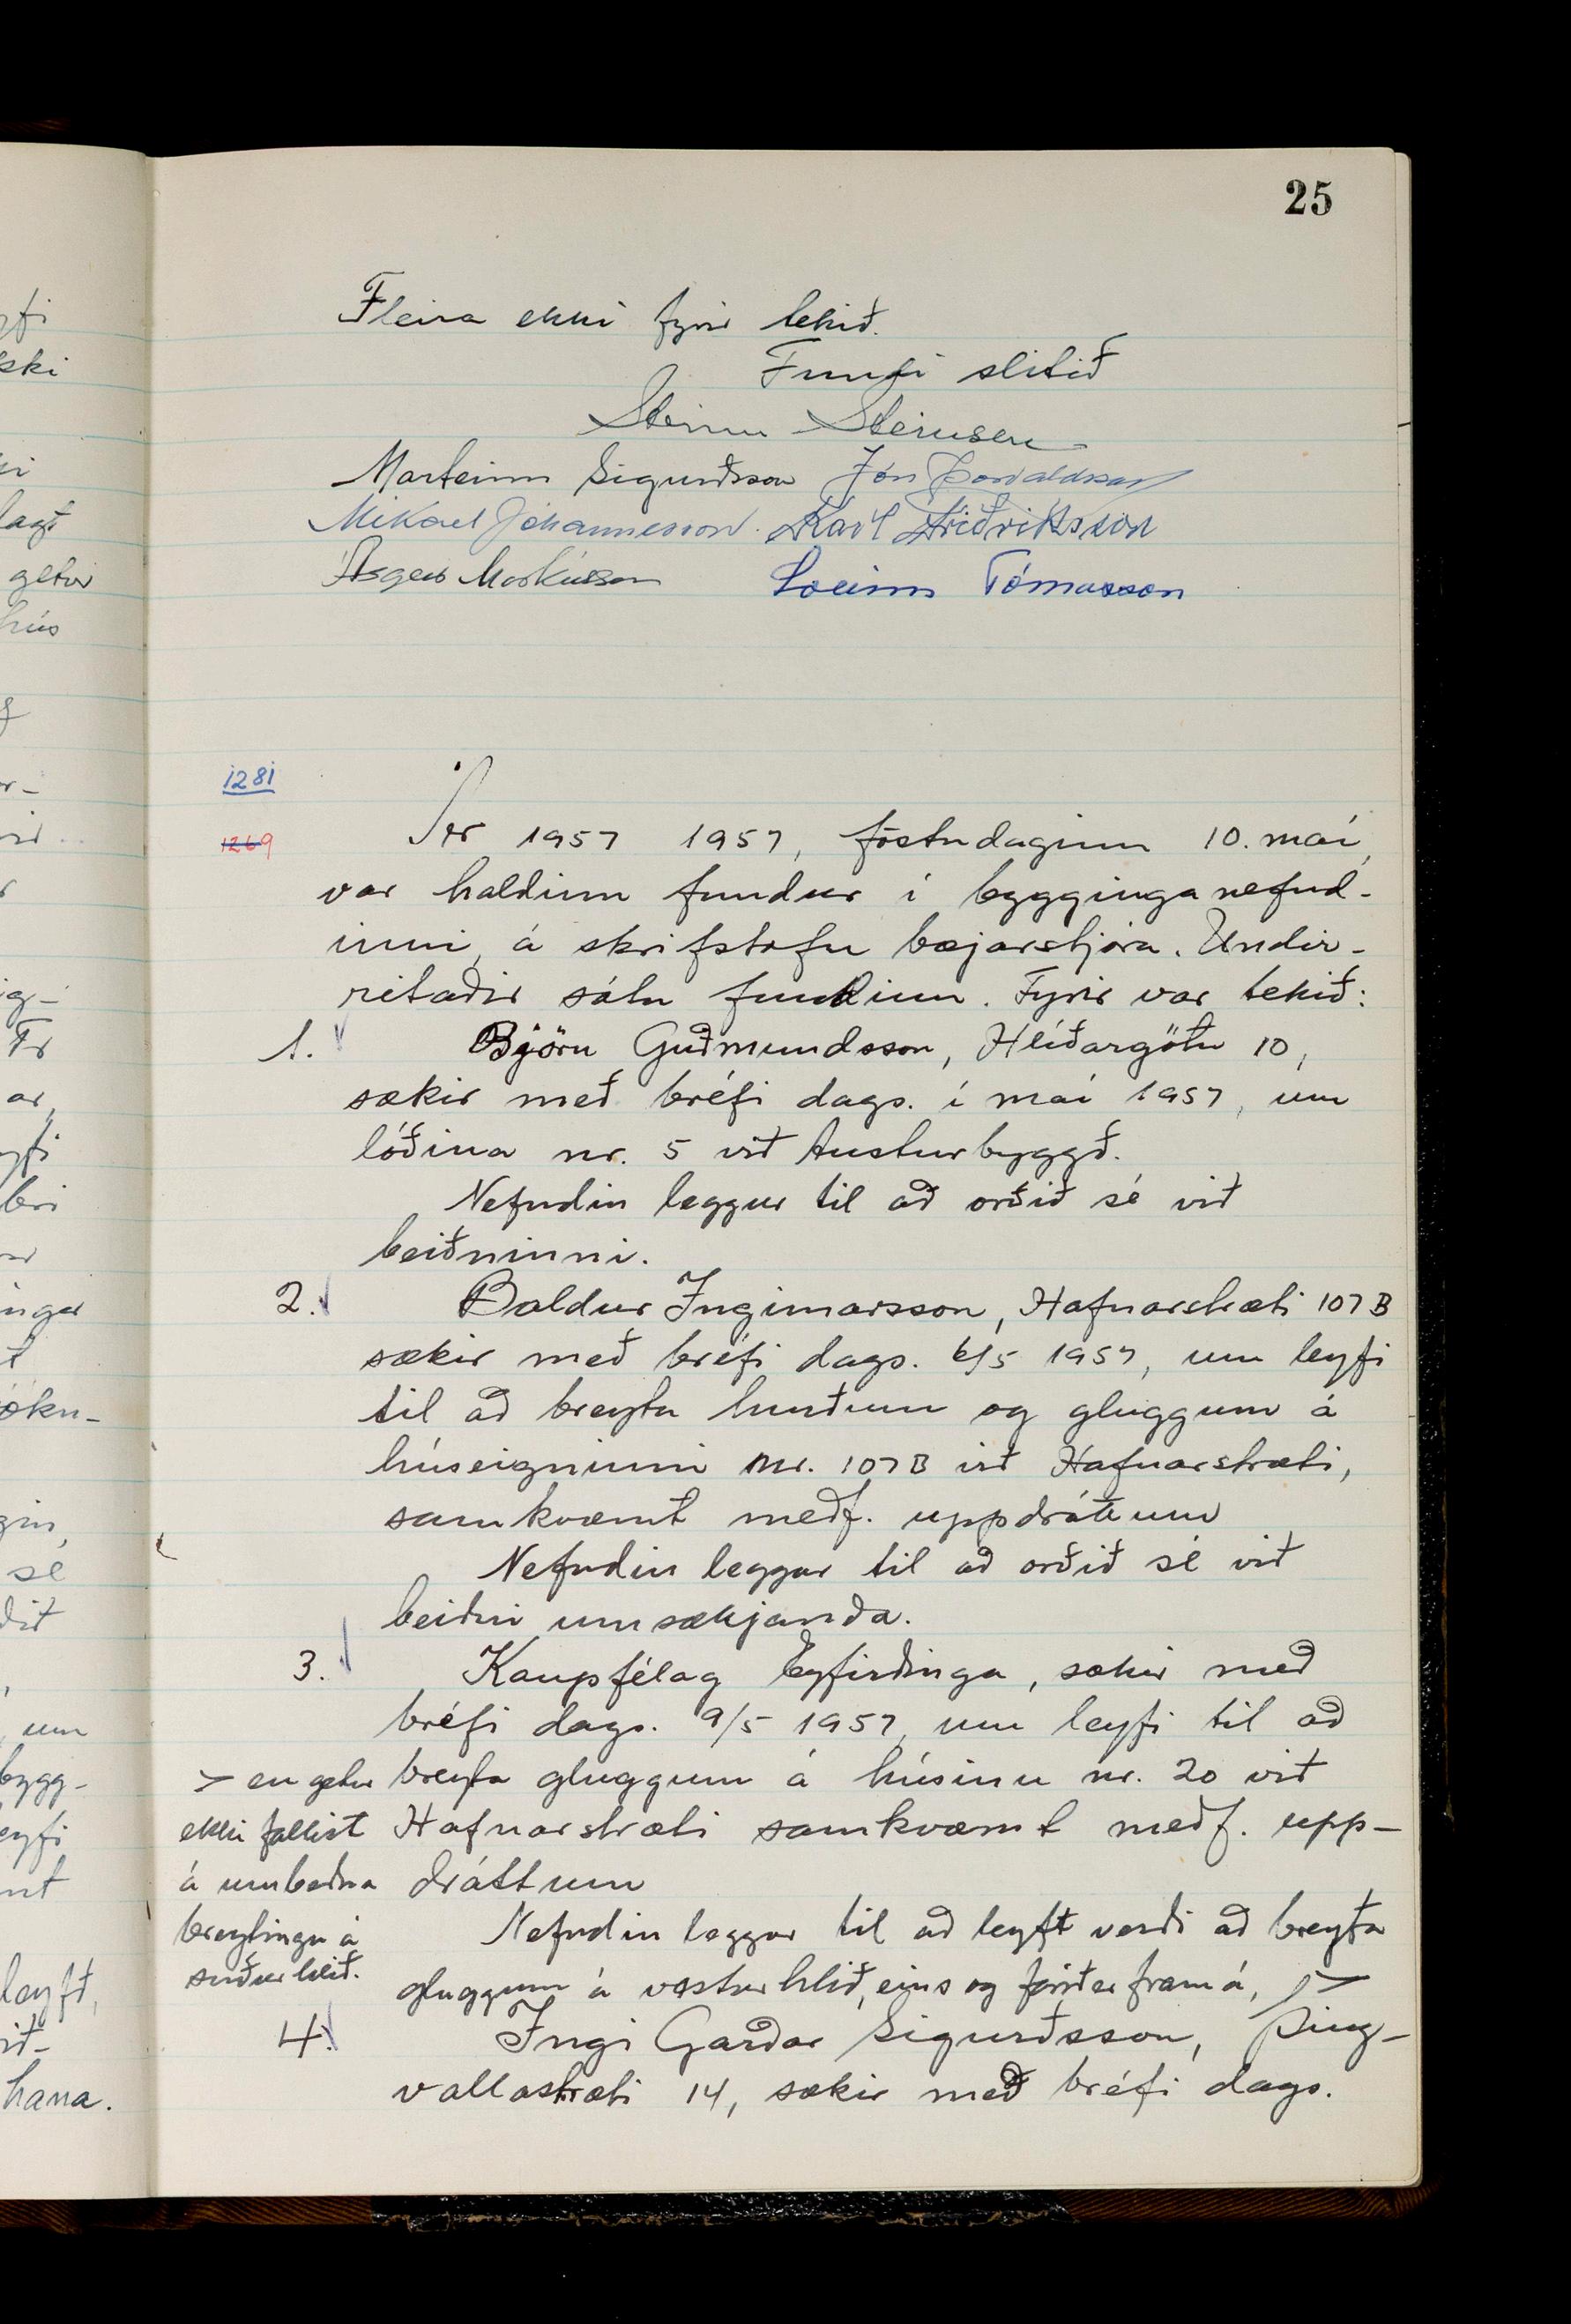 25
Fleira ekki fyrir tekið.
Fundi slitið
Steinn Steinsen
Marteinn Sigurðsson Jón Þorvaldsson
Mikael Jóhannesson. Karl Friðriksson
Ásgeir Markússon Sveinn Tómasson
1281
1269
Ár 1957 1957, föstudaginn 10. maí,
var haldinn fundur í bygginganefnd-
inni, á skrifstofu bæjarstjóra. Undir-
ritaðir sátu fundinn. Fyrir var tekið:
1. Björn Guðmundsson, Hlíðargötu 10,
sækir með bréfi dags. í maí 1957, um
lóðina nr. 5 við Austurbyggð.
Nefndin leggur til að orðið sé við
beiðninni.
2. Baldur Ingimarsson, Hafnarstræti 107 B
sækir með bréfi dags. 6/5 1957, um leyfi
til að breyta hurðum og gluggum á
húseigninni nr. 107 B við Hafnarstræti,
samkvæmt meðf. uppdráttum
Nefndin leggur til að orðið sé við
beiðni umsækjanda.
3. Kaupfélag Eyfirðinga, sækir með
bréfi dags. 9/5 1957, um leyfi til að
breyta gluggum á húsinu nr. 20 við
Hafnarstræti samkvæmt meðf. upp-
dráttum
Nefndin leggur til að leyft verði að breyta
gluggum á vesturhlið, eins og farið er fram á, >
> en getur
ekki fallist
á umbeðna
breytingu á
suðurhlið.
4. Ingi Garðar Sigurðsson, Þing-
vallastræti 14, sækir með bréfi dags.